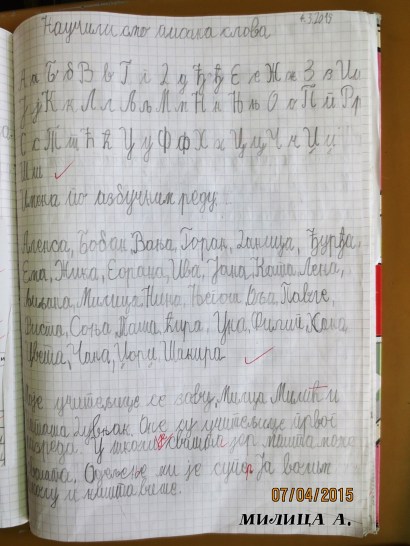 4.3.2015
Научили смо писана слова
А а Б б В в Г г Д д Ђ ђ Е е Ж ж З з И и
Ј ј К к Л л Љ љ М м Н н Њ њ О о П п Р р
С с Т т Ћ ћ У у Ф ф Х х Ц ц Ч ч Џ џ
Ш ш
Имена по азбучном реду.
Алекса, Бобан, Вања, Горан, Даница, Ђурђа,
Ема, Жика, Зорана, Ива, Јана, Ката, Лена,
Љиљана, Милица, Нина, Његош, Павле,
Риста, Соња, Таша, Ћира, Ука, Филип, Хана,
Цвета, Чана, Шакира
учитељице се зову, Милица Милић и
Оне су учитељице првог
разреда. У школи јер
Одељење ми је супер Ја волим
школу и наставнице.
07/04/2015
МИЛИЦА А.